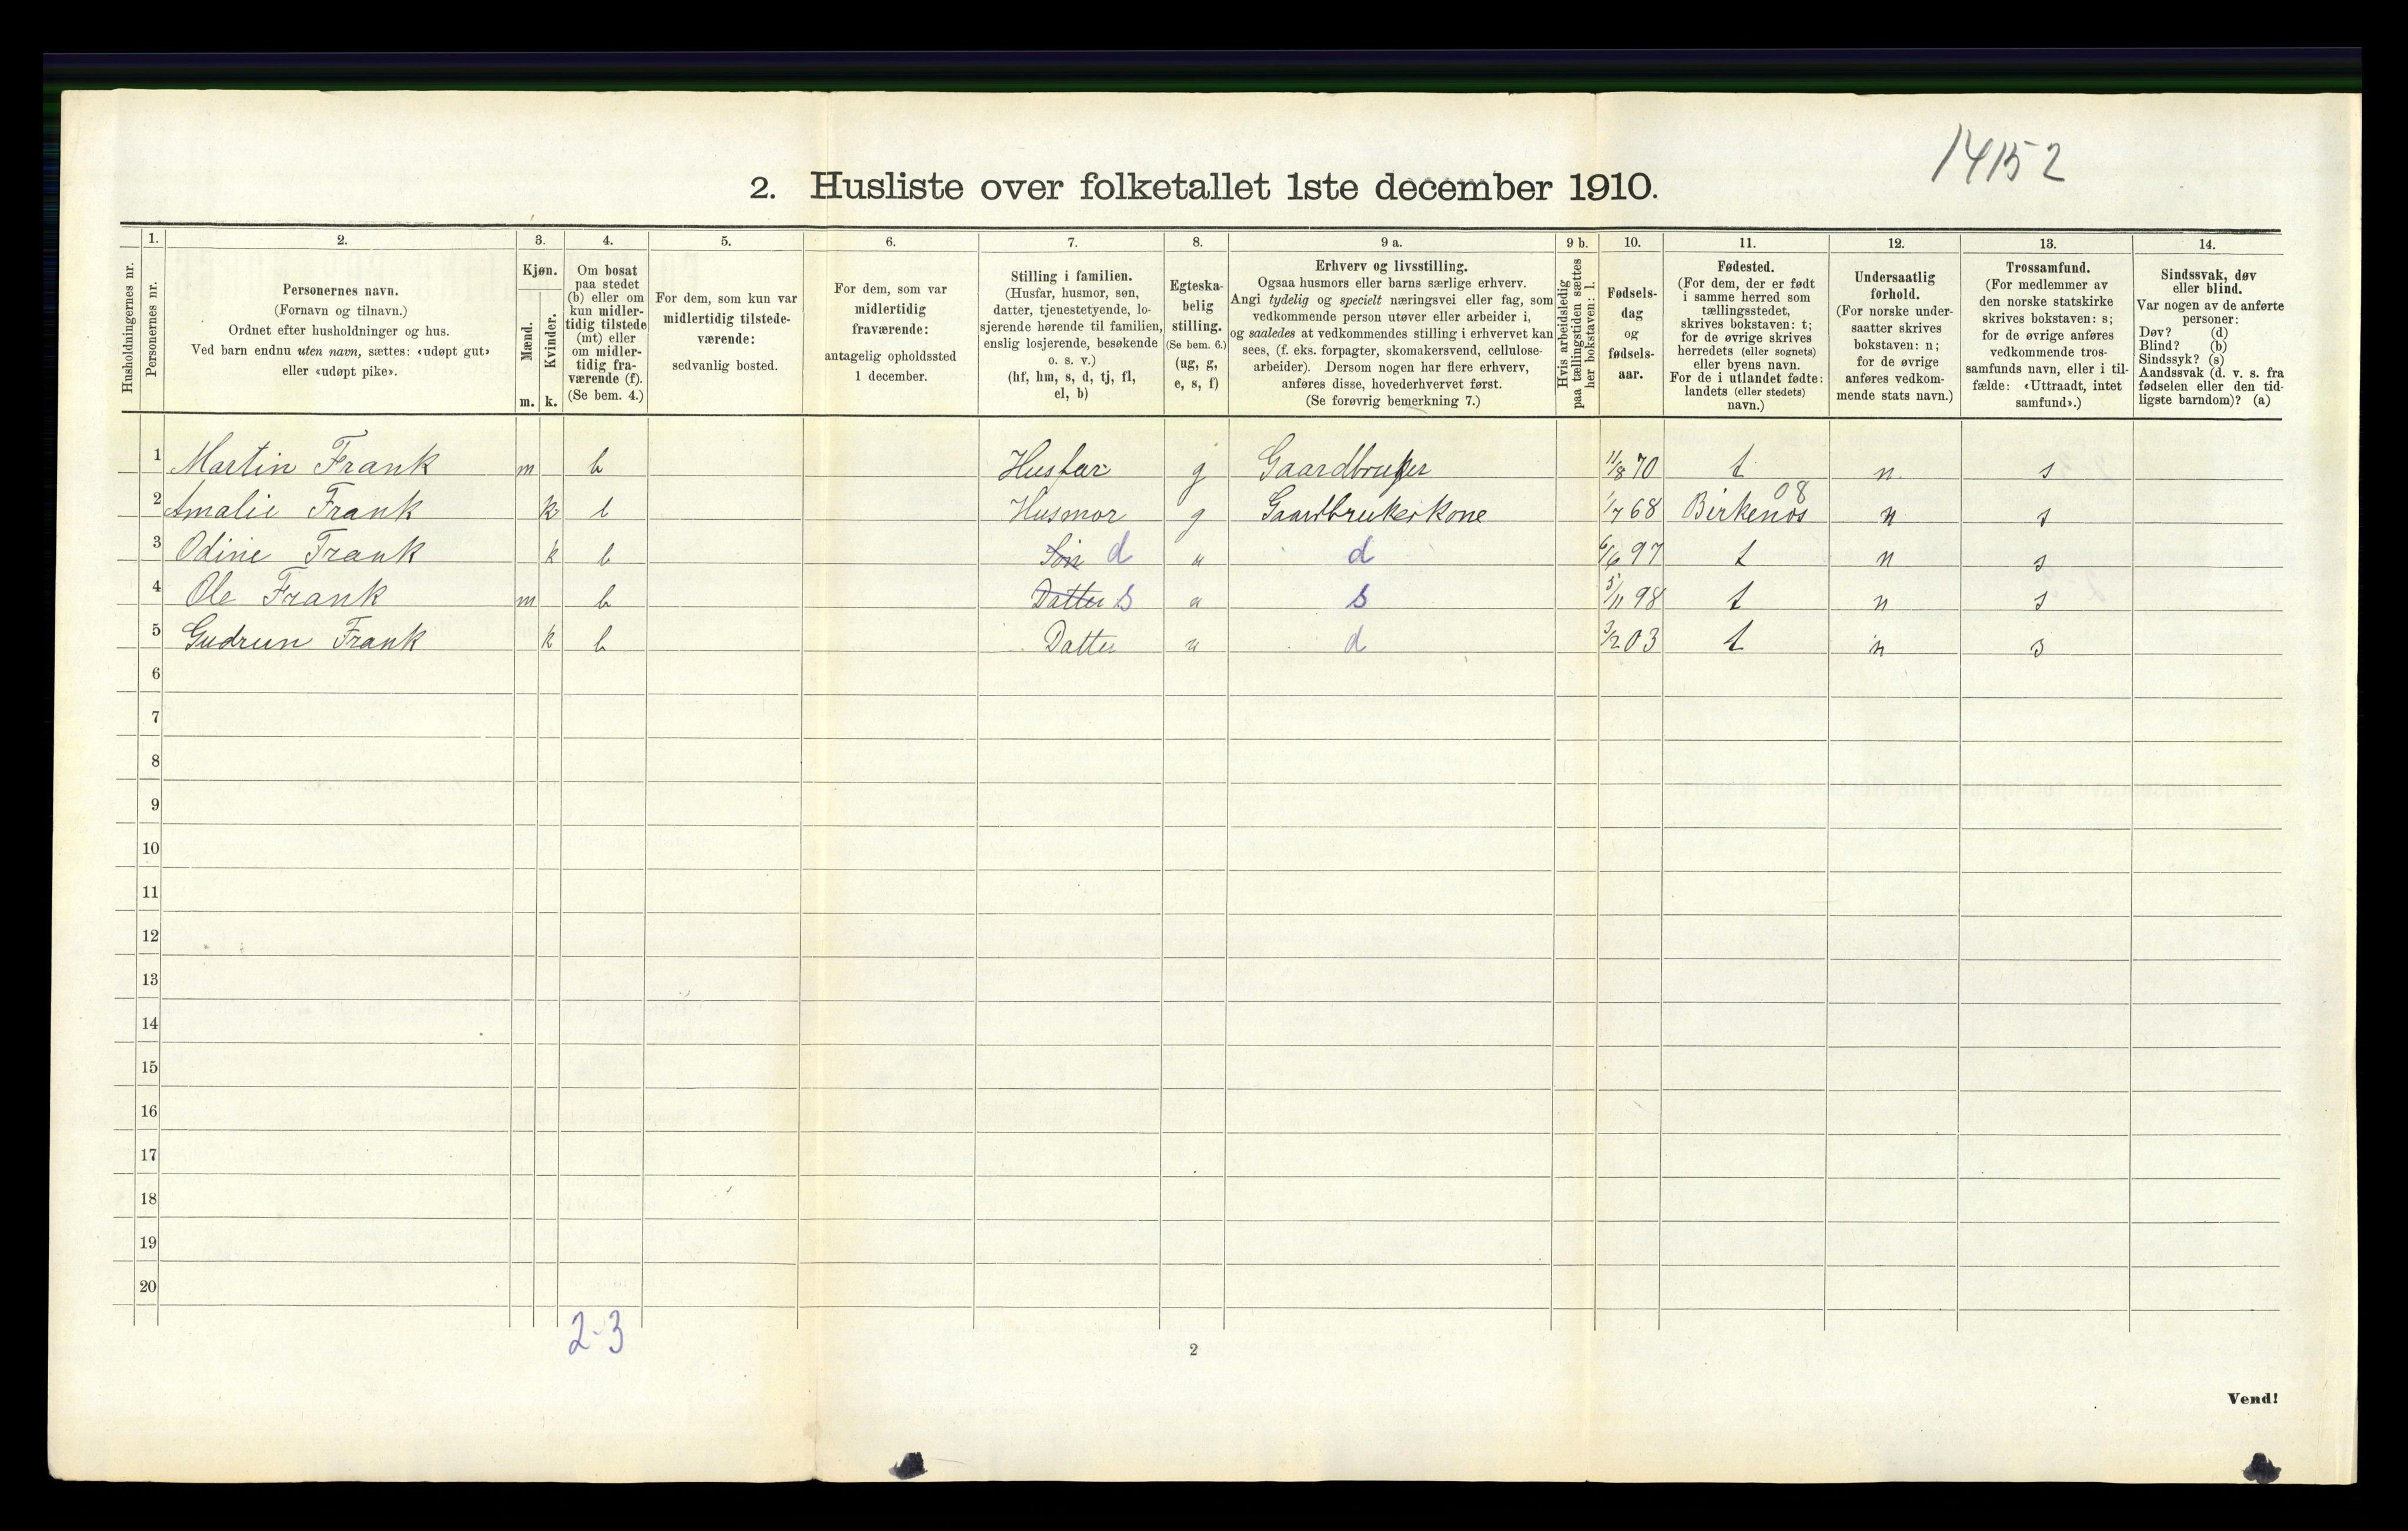 14152
2. Husliste over folketallet 1ste december 1910.
Husholdningernes nr.
1.
Personernes nr.
2.
Personernes navn.
(Fornavn og tilnavn.)
Ordnet efter husholdninger og hus.
Ved barn endnu uten navn, sættes: «udøpt gut»
eller «udøpt pike».
3.
Kjøn.
Mænd.
Kvinder.
m. k.
4.
Om bosat
paa stedet
(b) eller om
kun midler-
tidig tilstede
(mt) eller
om midler-
tidig fra-
værende (f).
(Se bem. 4.)
5.
For dem, som kun var
midlertidig tilstede-
værende:
sedvanlig bosted.
6.
For dem, som var
midlertidig
fraværende:
antagelig opholdssted
1 december.
7.
Stilling i familien.
(Husfar, husmor, søn,
datter, tjenestetyende, lo-
sjerende hørende til familien,
enslig losjerende, besøkende
o. s. v.)
(hf, hm, s, d, tj, fl,
el, b)
8.
Egteska-
belig
stilling.
(Se bem. 6.)
(ug, g,
e, s, f)
9 a.
Erhverv og livsstilling.
Ogsaa husmors eller barns særlige erhverv.
Angi tydelig og specielt næringsvei eller fag, som
vedkommende person utøver eller arbeider i,
og saaledes at vedkommendes stilling i erhvervet kan
sees, (f. eks. forpagter, skomakersvend, cellulose-
arbeider). Dersom nogen har flere erhverv,
anføres disse, hovederhvervet først.
(Se forøvrig bemerkning 7.)
9 b.
Hvis arbeidsledig
paa tællingstiden sættes
her bokstaven: l.
10.
Fødsels-
dag
og
fødsels-
aar.
11.
Fødested.
(For dem, der er født
i samme herred som
tællingsstedet,
skrives bokstaven: t;
for de øvrige skrives
herredets (eller sognets)
eller byens navn.
For de i utlandet fødte:
landets (eller stedets)
navn.)
12.
Undersaatlig
forhold.
(For norske under-
saatter skrives
bokstaven: n;
for de øvrige
anføres vedkom-
mende stats navn.)
13.
Trossamfund.
(For medlemmer av
den norske statskirke
skrives bokstaven: s;
for de øvrige anføres
vedkommende tros-
samfunds navn, eller i til-
fælde: «Uttraadt, intet
samfund».)
14.
Sindssvak, døv
eller blind.
Var nogen av de anførte
personer:
Døv? (d)
Blind? (b)
Sindssyk? (s)
Aandssvak (d. v. s. fra
fødselen eller den tid-
ligste barndom)? (a)
1 Martin Frank m b Husfar g Gaardbruker 11/8 70 t n s
08
2 Amalie Frank k b Husmor g Gaardbrukerkone 1/7 68 Birkenes n s
3 Odine Frank k b Søn d u d 6/6 97 t n s
4 Ole Frank m b Datter s u s 5/11 98 t n s
5 Gudrun Frank k b Datter u d 3/2 03 t n s
6
7
8
9
10
11
12
13
14
15
16
17
18
19
20
2-3
2
Vend!